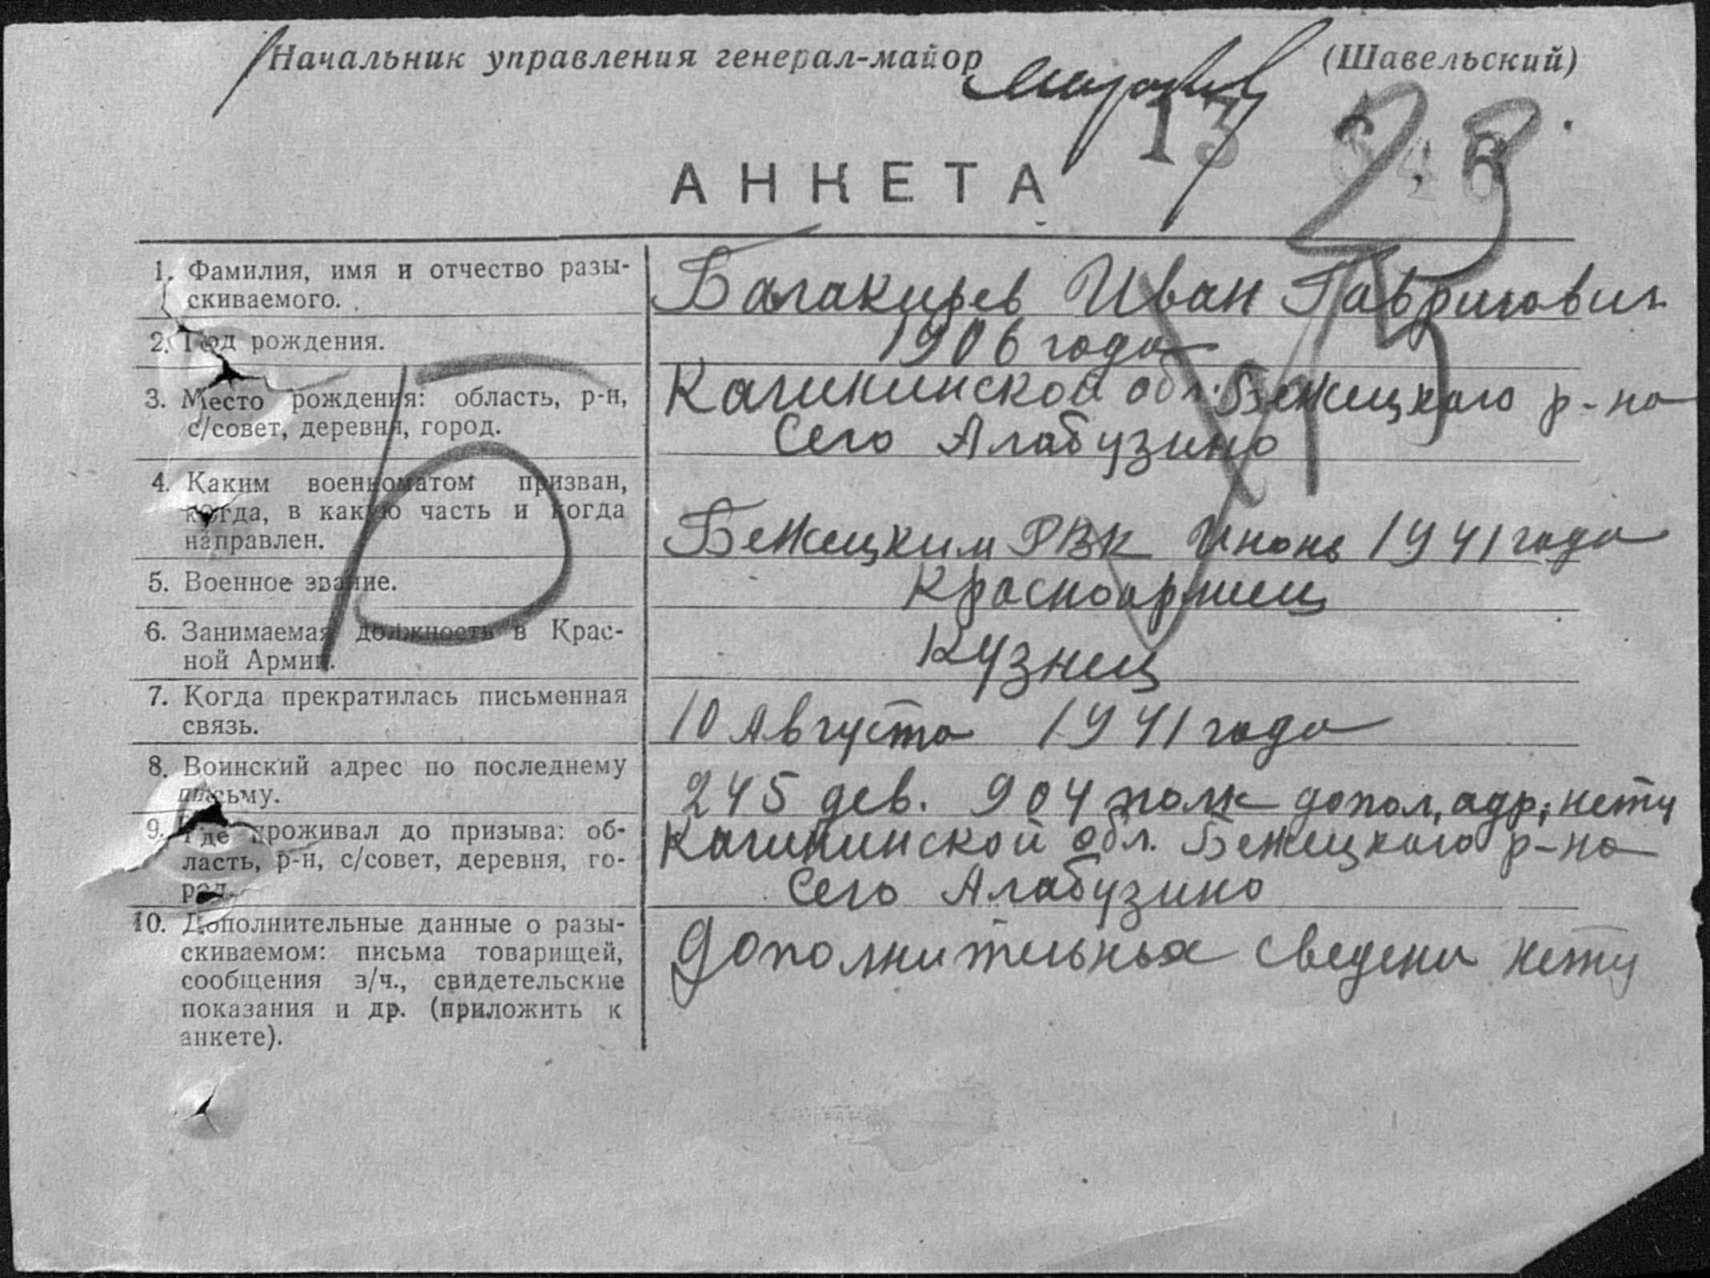 Начальник управления генерал-майор (Шавельский)
13
23
АНКЕТА
1. Фамилия, имя и отчество разы-
скиваемого.
Балакирев Иван Гаврилович
2. Год рождения.
1906 года
3. Место рождения: область, р-н,
с/совет, деревня, город.
Калининской обл. Бежецкого р-на
Село Алабузино
4. Каким военкоматом призван,
когда, в какую часть и когда
направлен.
Бежецким РВК Июнь 1941 года
5. Военное звание.
Красноармец
6. Занимаемая должность в Крас-
ной Армии.
Кузнец
7. Когда прекратилась письменная
связь.
10 Августа 1941 года
8. Воинский адрес по последнему
письму.
245 дев. 904 полк допол, адр, нету
9. Где проживал до призыва: об-
ласть, р-н, с/совет, деревня, го-
род.
Калининской обл. Бежецкого р-на
Село Алабузино
10. Дополнительные данные о разы-
скиваемом: письма товарищей,
сообщения з/ч., свидетельские
показания и др. (приложить к
анкете).
Дополнительных сведени нету
Б